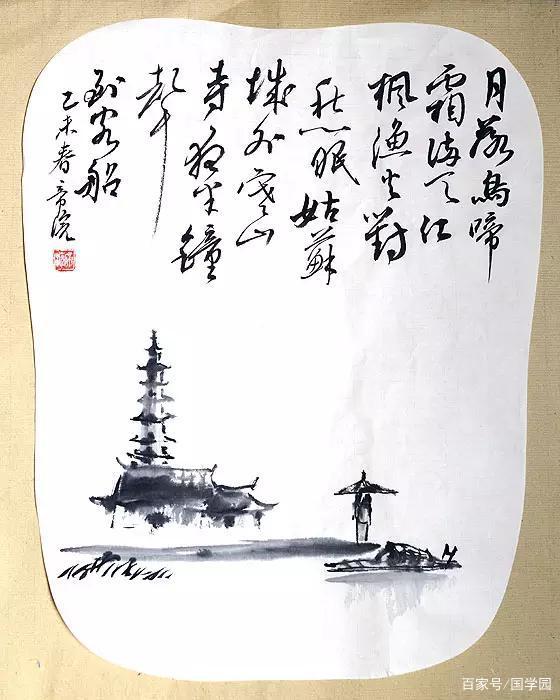 月落烏啼
霜滿天江
楓漁火對
愁眠姑蘇
城外寒山
寺夜半鐘
聲
到客船
乙未春
百家号/国学园